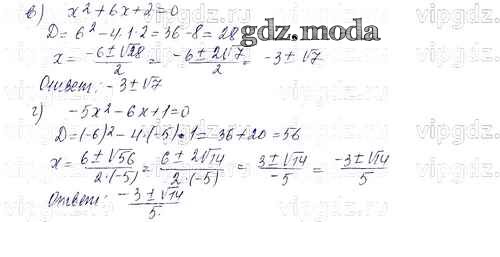 в) x² + 6x + 2 = 0
D = 6² - 4·1·2 = 36 - 8 = 28
x = (-6 ± √28)/2 = (-6 ± 2√7)/2 = -3 ± √7
Ответ: -3 ± √7
г) -5x² - 6x + 1 = 0
D = (-6)² - 4·(-5)·1 = 36 + 20 = 56
x = (6 ± √56)/(2·(-5)) = (6 ± 2√14)/(2·(-5)) = (3 ± √14)/(-5) = (-3 ± √14)/5
Ответ: (-3 ± √14)/5
gdz.moda
vipgdz.com